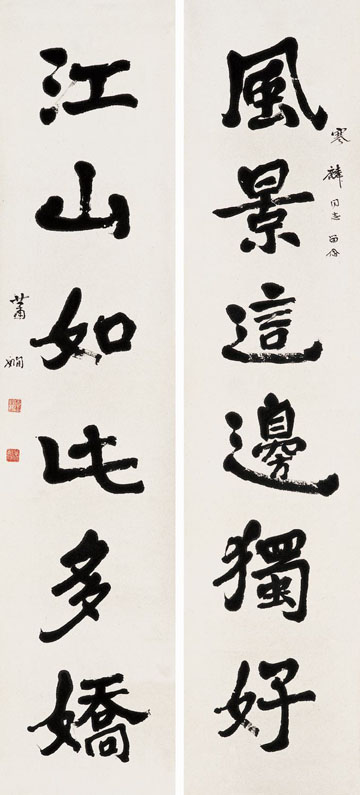 風景這邊獨好
寒 同志
江山如此多嬌
蕭嫻